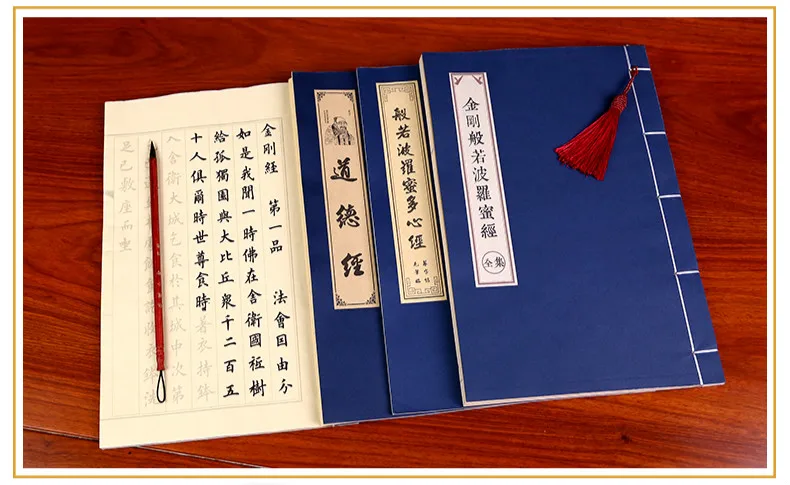 金剛經 第一品 法會囙由分
如是我聞一時佛在舍衛國祗樹
給孤獨園與大比丘衆千二百五
十人俱爾時世尊食時著衣持鉢
入舍衛大城乞食於其城中次第
飯食訖收衣鉢洗
足已敷座而坐
道德經
般若波羅蜜多心經
金剛般若波羅蜜經
全集